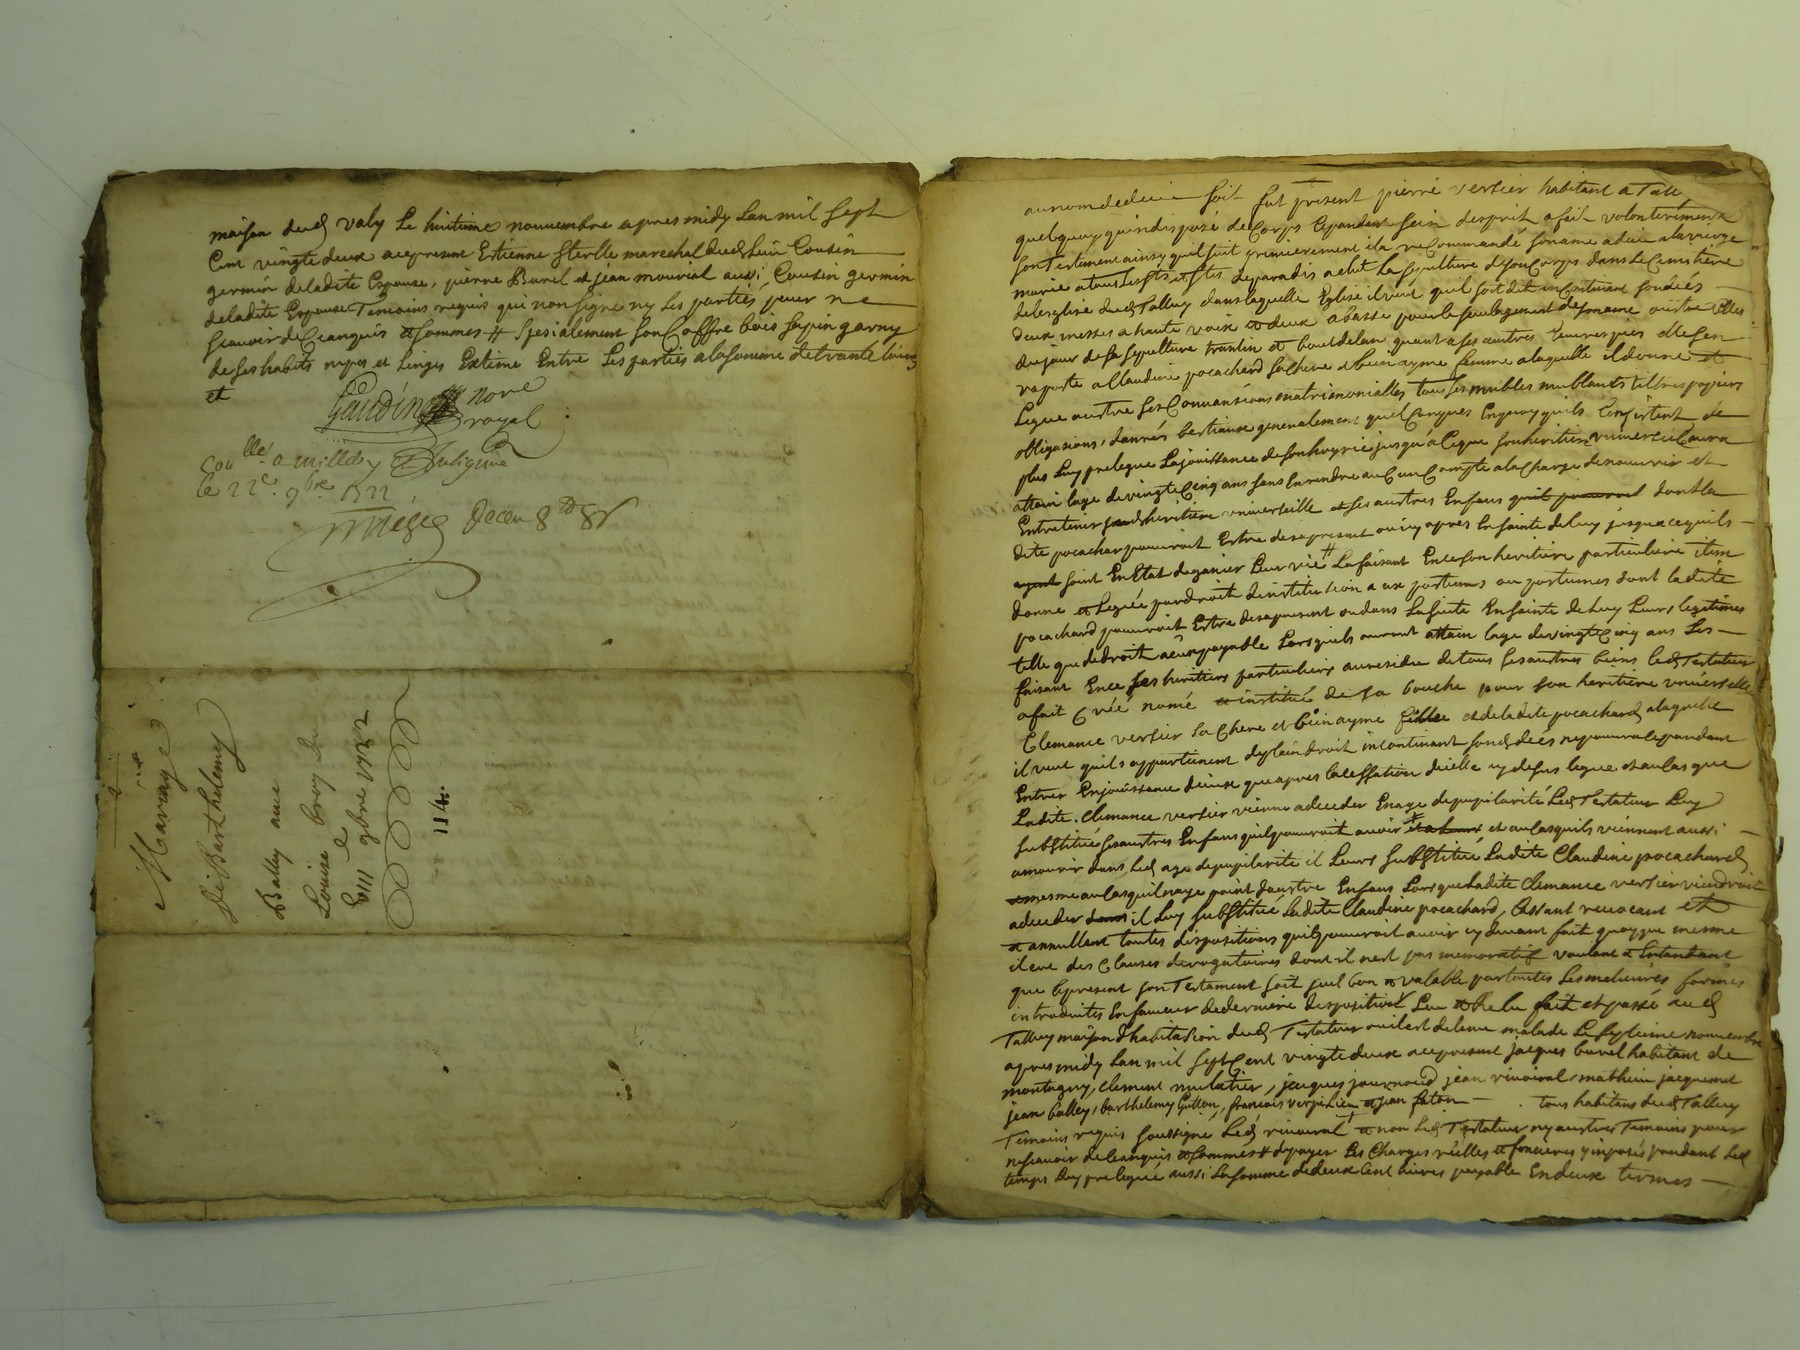 maison dud valy Le huitieme nouuembre apres midy Lan mil sept
Cent vingte deux acepresent Estienne Sterlle marechal dud Lieu Cousin
germin deladite Espouse, pierre Burel et jean mourial aussi Cousin germin
deladite Espouse Temoins requis qui non signe ny Les parties pour ne
scauoir de Ceanquis et sommes # spesialement son Coffre bois sapin garny
de ses habits nipes et Linges Extime Entre Les parties alasomme detrante Liures
et
Gaudin nore
royal
Coollé a millery
le 22e 9bre 1722
Receu 8
Mariage
de Barthelemy
Balley auec
Louise
VIII e 9bre 1722
114.
au nom de dieu soit fut present pierre versier habitant a Tall
quelquoy quindisposé de Corps Cependant sain desprit a fait volonterement
son Testement ainsy quil suit premierement il a reCommandé son ame a dieu alavierge
marie a tous Les sts et stes deparadis a elut La sepulture de son Corps dans Le Cemitiere
deleglise dud Talluy dans laquelle Eglise il veut quil soit dit inContinant son deces
deux messes a haute voix et deux abasse pour le soulagement de son ame outre Celles
du jour de sa sepulture trantin et bout delan quant a ses autres Eeuvres pies elle sen
raporte a Claudine pocachard sa chere et bien ayme femme a laquelle il donne et
Legue outre ses Conuansions matrimonialles tous ses meubles meublants tiltres papiers
obligasions, danrés bestiaux generalement quelConques Enquoy quils Consistent de
plus Luy prelegue La jouissance de son hoyrie jusqu'a Ceque son heritier vniuersel aura
attain lage de vingteCinq ans sans En rendre aucun Compte a la Charge de nourrir et
Entretenir sond heritiere vniuerselle et ses autres Enfans quil pouuroit dont la
dite pocachard pouuroit Estre des apresent ou cy apres Ensainte de luy jusquacequils
ayent soint En Estat de ganier Leur vie # La faisant Ence son heritiere particuliere item
donne et Legue par droit dinstitution a ux postumes ou postumes dont ladite
pocachard pouuroit Estre desapresent ou dans La suite Ensainte de Luy Leurs legitimes
telle que de droit a eux payable Lors quils auront attain lage de vingteCinq ans Les
faisant Ence ses heritiers particuliers au residu de tous ses autres biens led Testateur
a fait Créé nomé et institué de sa bouche pour son heritiere vniuerselle
Clemance versier sa Chere et bien ayme fillie et de ladite pocachard a laquelle
il veut quils appartienent de plain droit incontinant son deces ne pouura Cependant
Entrer Enjouissance diceux que apres la Cessation dicelle cy desus legue et au Cas que
Ladite Clemance versier vienne a deceder En age de pupilarité Led Testateur Luy
substitué ses autres Enfans quil pouuroit auoir et au Cas quils viennent aussi
a mourir dans Led age de pupilarite il Leurs substitué Ladite Claudine pocachard
et mesme au Cas quil naye point dautre Enfans Lors que Ladite Clemance versier viendroit
a deceder il Luy substitué Ladite Claudine pocachard, Cassant reuocant et
et annullant toutes dispositions quil pouuroit auoir cy deuant fait quoyque mesme
il eut des Clauses derogatoires dont il nest pas memoratif voulant et Entandant
que le present son Testament soit seul bon et valable par toutes Les melieures formes
introduites En faueur de derniere disposition Leu et Relu fait et passé aud
Talluy maison dhabitasion dud Testateur ou il est detenu malade Le septieme nouuembre
apres midy Lan mil septCent vingte deux acepresent jacques burel habitant de
montagny, Clement mulatier, jacques journoud jean rinoiral mathieu jacquemet
jean balley, barthelemy Gutton, francois verpilieu et jean faton tous habitans dud Talluy
Temoins requis soussigné Led rinoiral et non Led Testateur ny autres Temoins pour
ne scauoir de Ceanquis et sommes # de payer Les Charges réelles et foncieres y imposés pendant Led
temps Luy prelegué aussi La somme de deux Cent Liures payable En deux termes